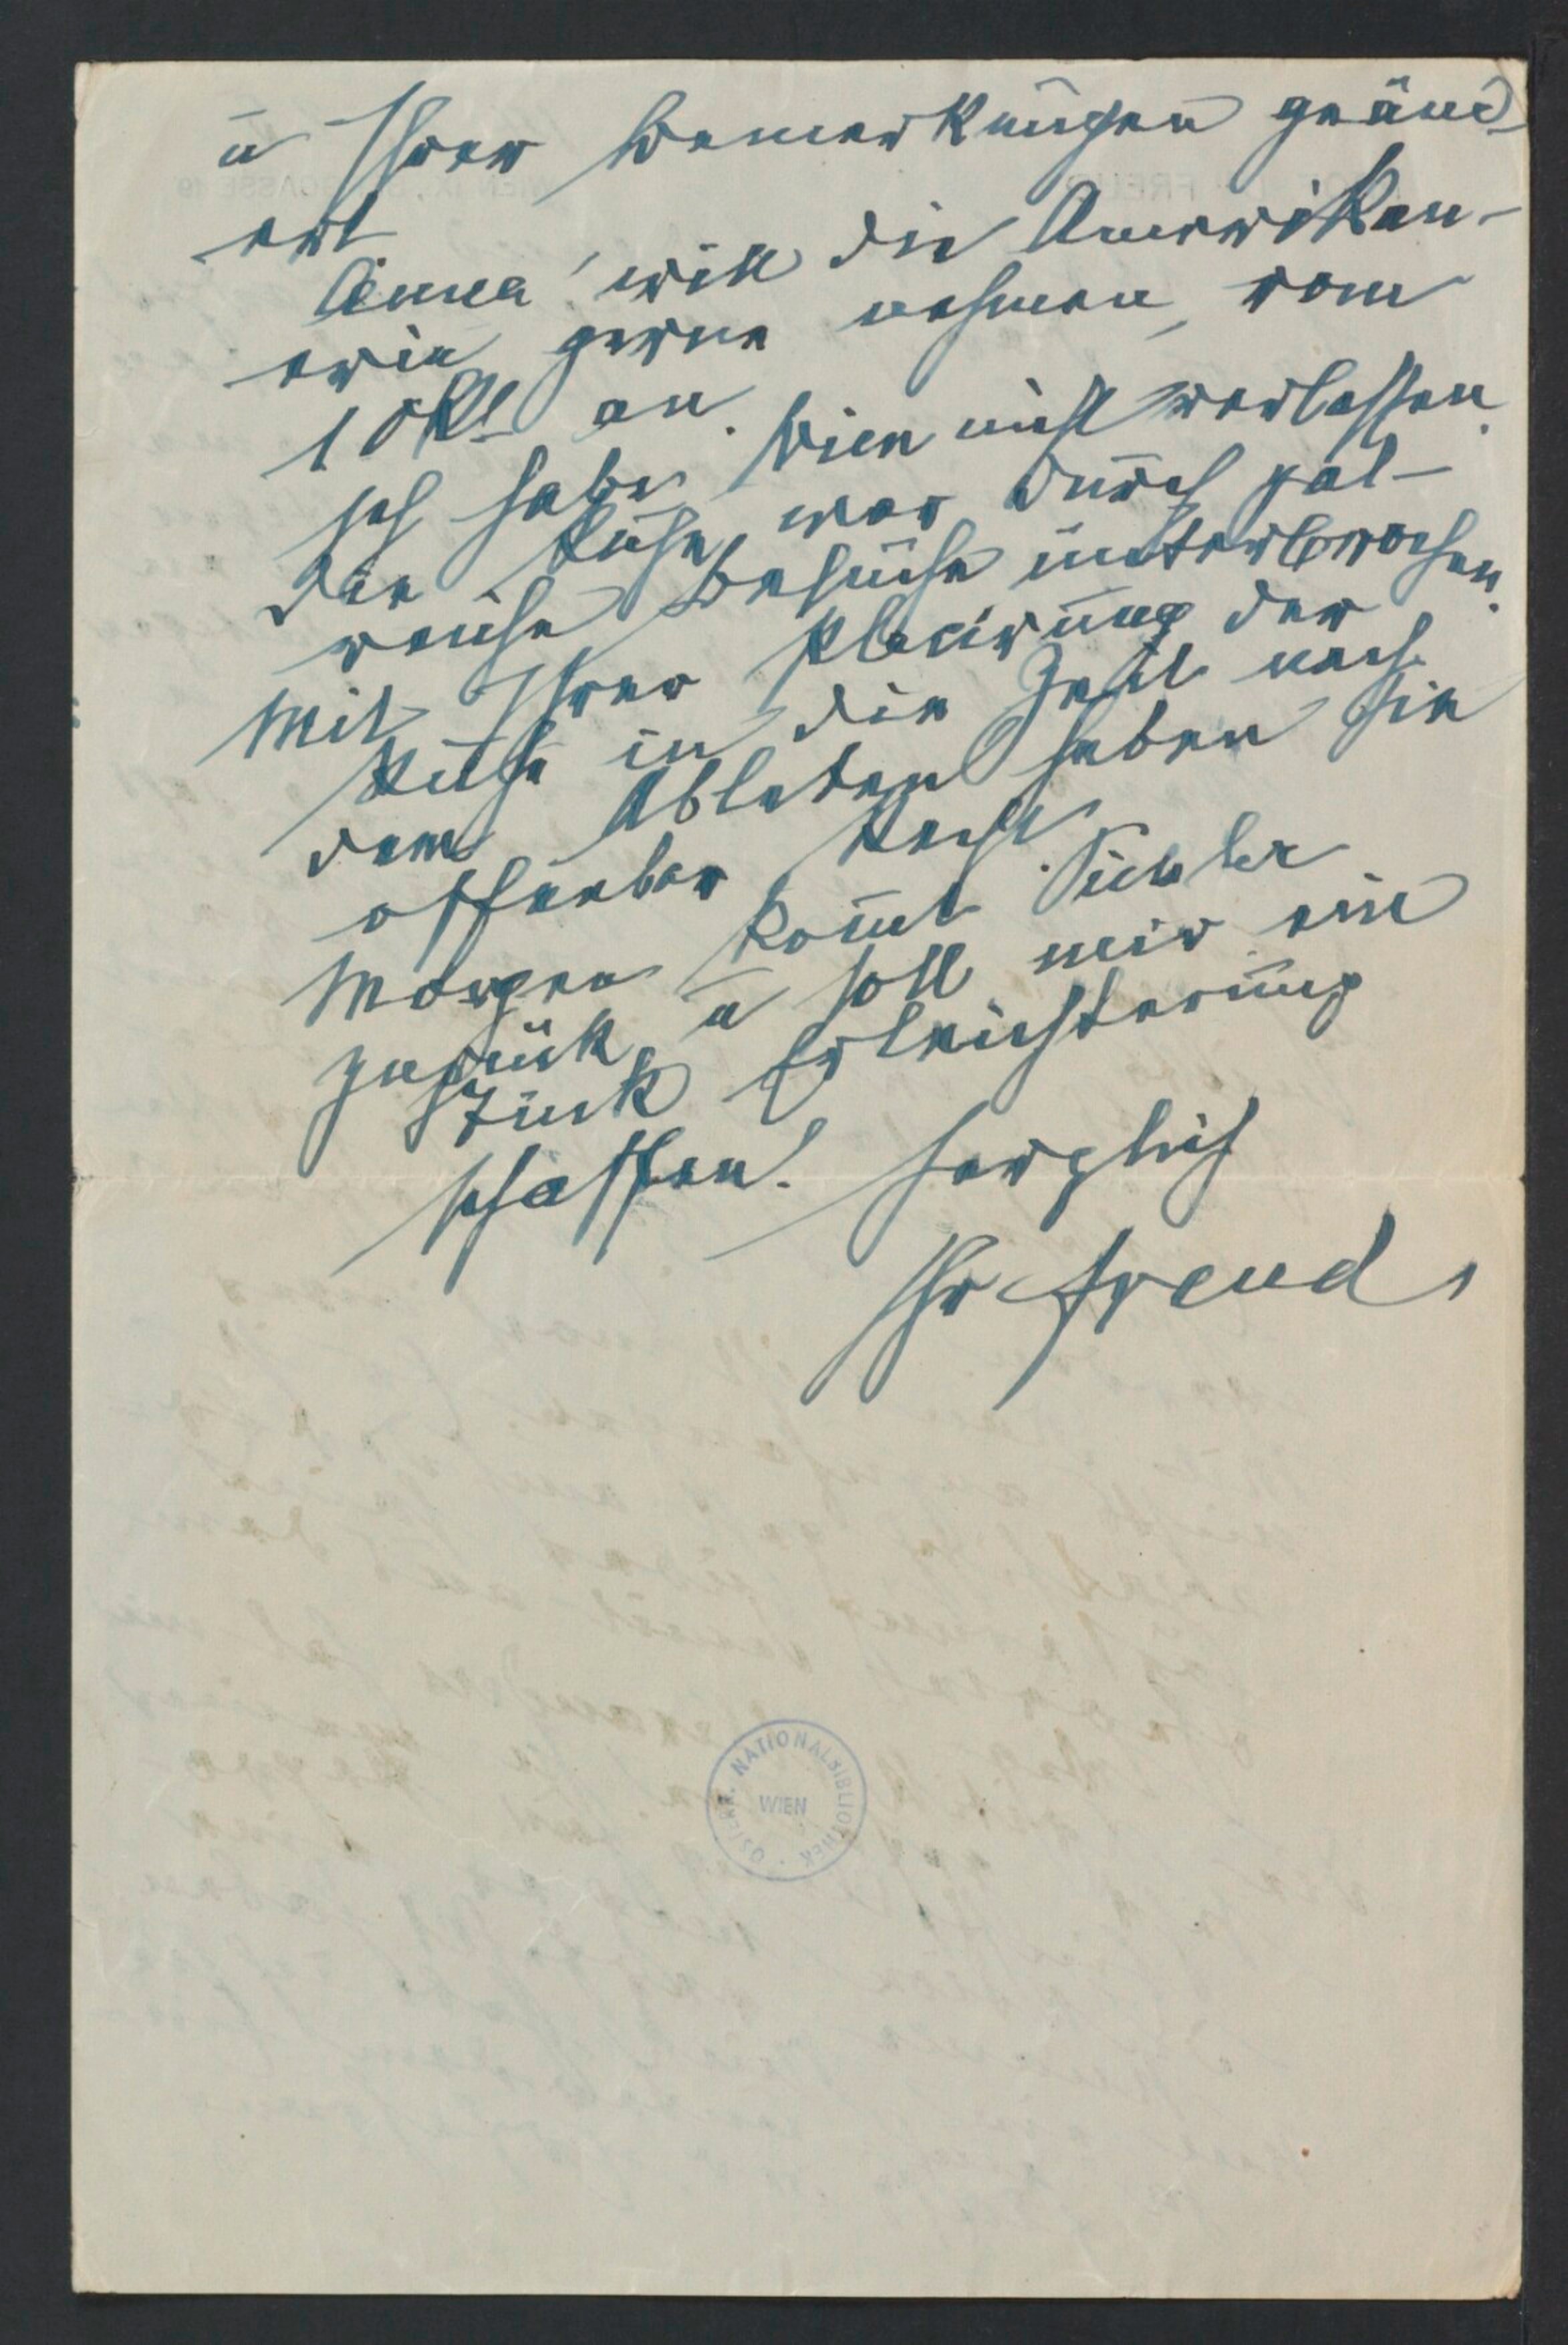 u Ihrer Bemerkungen geänd-
ert
Anna will die Amerikan-
erin gerne nehmen, vom
10 Okt an.
Ich habe Wien nicht verlassen.
Die Ruhe war durch zal-
reiche Besuche unterbrochen.
Mit Ihrer Placirung der
Ruhe in die Zeit nach
dem Ableben haben Sie
offenbar Recht.
Morgen kom̄t Pichler
zurück u soll mir ein
Stück Erleichterung
schaffen.
Herzlich
Ihr Freud
ÖSTERR. NATIONALBIBLIOTHEK
WIEN